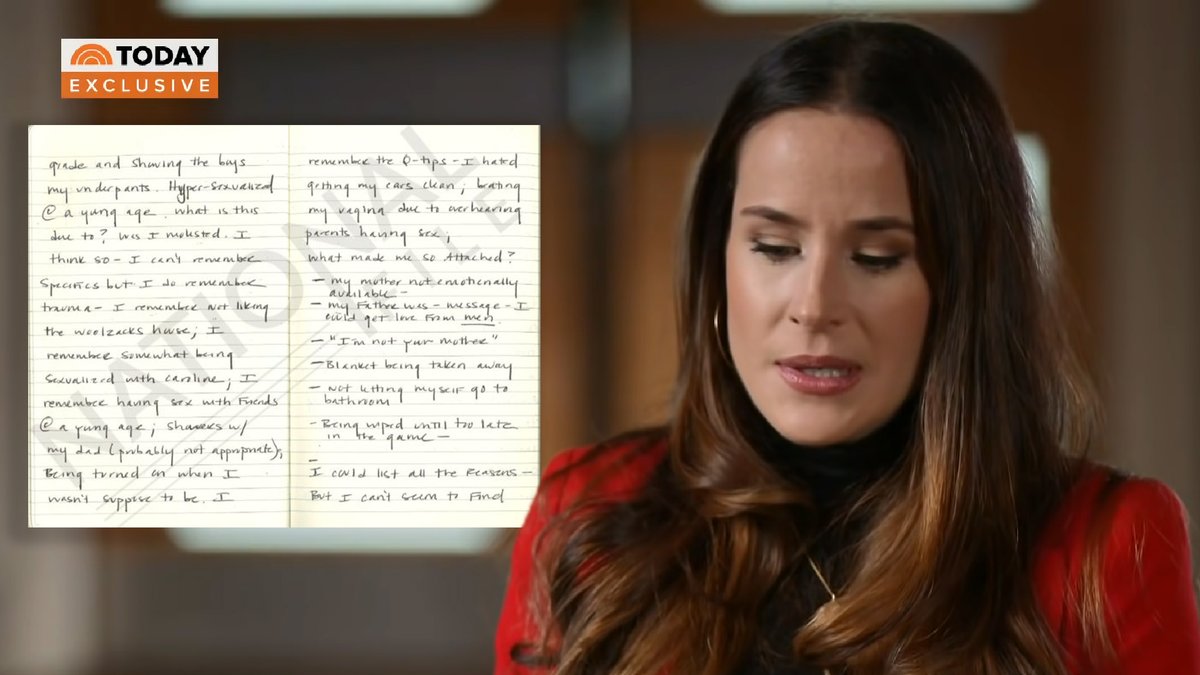 TODAY
EXCLUSIVE
grade and Showing the boys
my underpants. Hyper-Sexualized
@ a yung age. what is this
due to? was I molested. I
think so - I can't remember
Specifics but I do remember
trauma - I remember not liking
the woolzacks house; I
remember somewhat being
Sexualized with caroline; I
remember having sex with Friends
@ a yung age; showers w/
my dad (probably not appropriate);
Being turned on when I
wasn't suppose to be. I
remember the Q-tips - I hated
getting my ears clean;
my vagina due to overhearing
parents having sex;
what made me so Attached?
- my mother not emotionally
available -
- my Father was - message - I
could get love from men.
- "I'm not your mother"
- Blanket being taken away
- Not letting myself go to
bathroom
- Being wiped until too late
in the game -
-
I could list all the Reasons -
But I can't seem to Find
NATIONAL
FILE